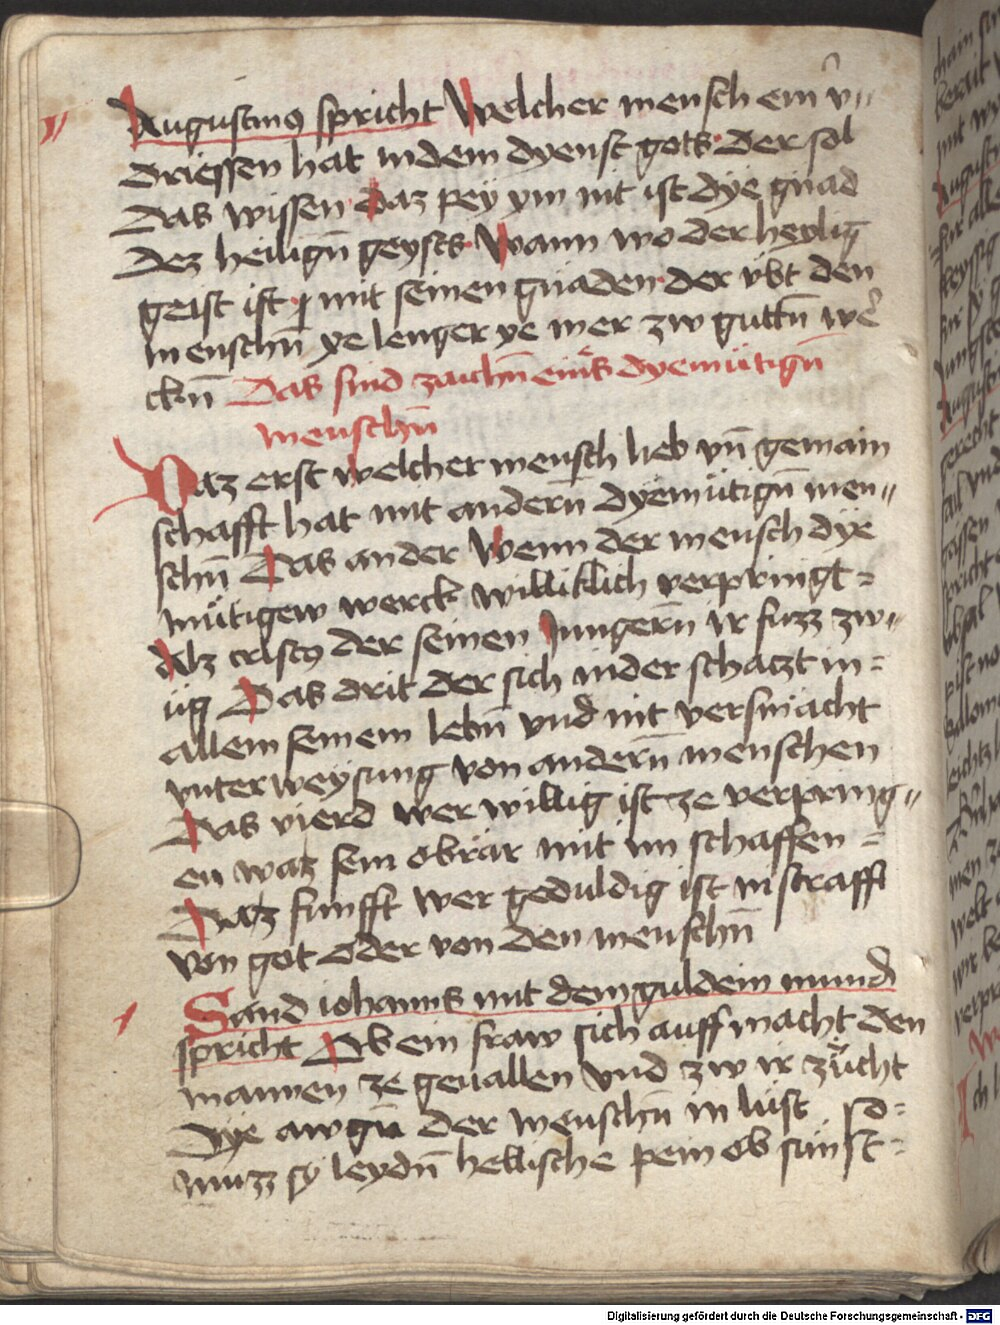 Augustinꝯ spricht Welcher mensch ein v̾„
driessen hat indem dyenst gots. der sol
Das wissen daz pey ym nit ist dye gnad
Dez heiligñ geysts. Wann wo der heylig
geist ist mit seinen gnaden. der vbt den
menschñ ye lenger ye mer zw guttñ we͛
ckñ Das sind zaichñ eins dyemütigñ
menschñ
Daz erst welcher mensch lieb vñ gemain
schafft hat mit anderñ dyemütigñ men„
schñ Das ander Wenn der mensch dye
mütigew werck williklich verpringt =
Alz cristꝯ der seinen Jungerñ ir fuzz zw„
üg Das drit der sich nider schaczt in =
allem seinem lebñ vnd nit versmächt
vnterweysung von anderñ menschen
Das vierd wer willig ist ze verpring„
en waz sein obrär mit im schaffen =
Daz funfft wer geduldig ist in straff
von got oder von den menschñ
Sand iohanns mit dem guldein mund
spricht Ob ein fraw sich auff macht den
mannen ze geuallen vnd zw ir zücht
Dye awgñ der menschñ in lust so =
muzz sy leydñ hellische pein ob sün st =
Digitalisierung gefördert durch die Deutsche Forschungsgemeinschaft - DFG